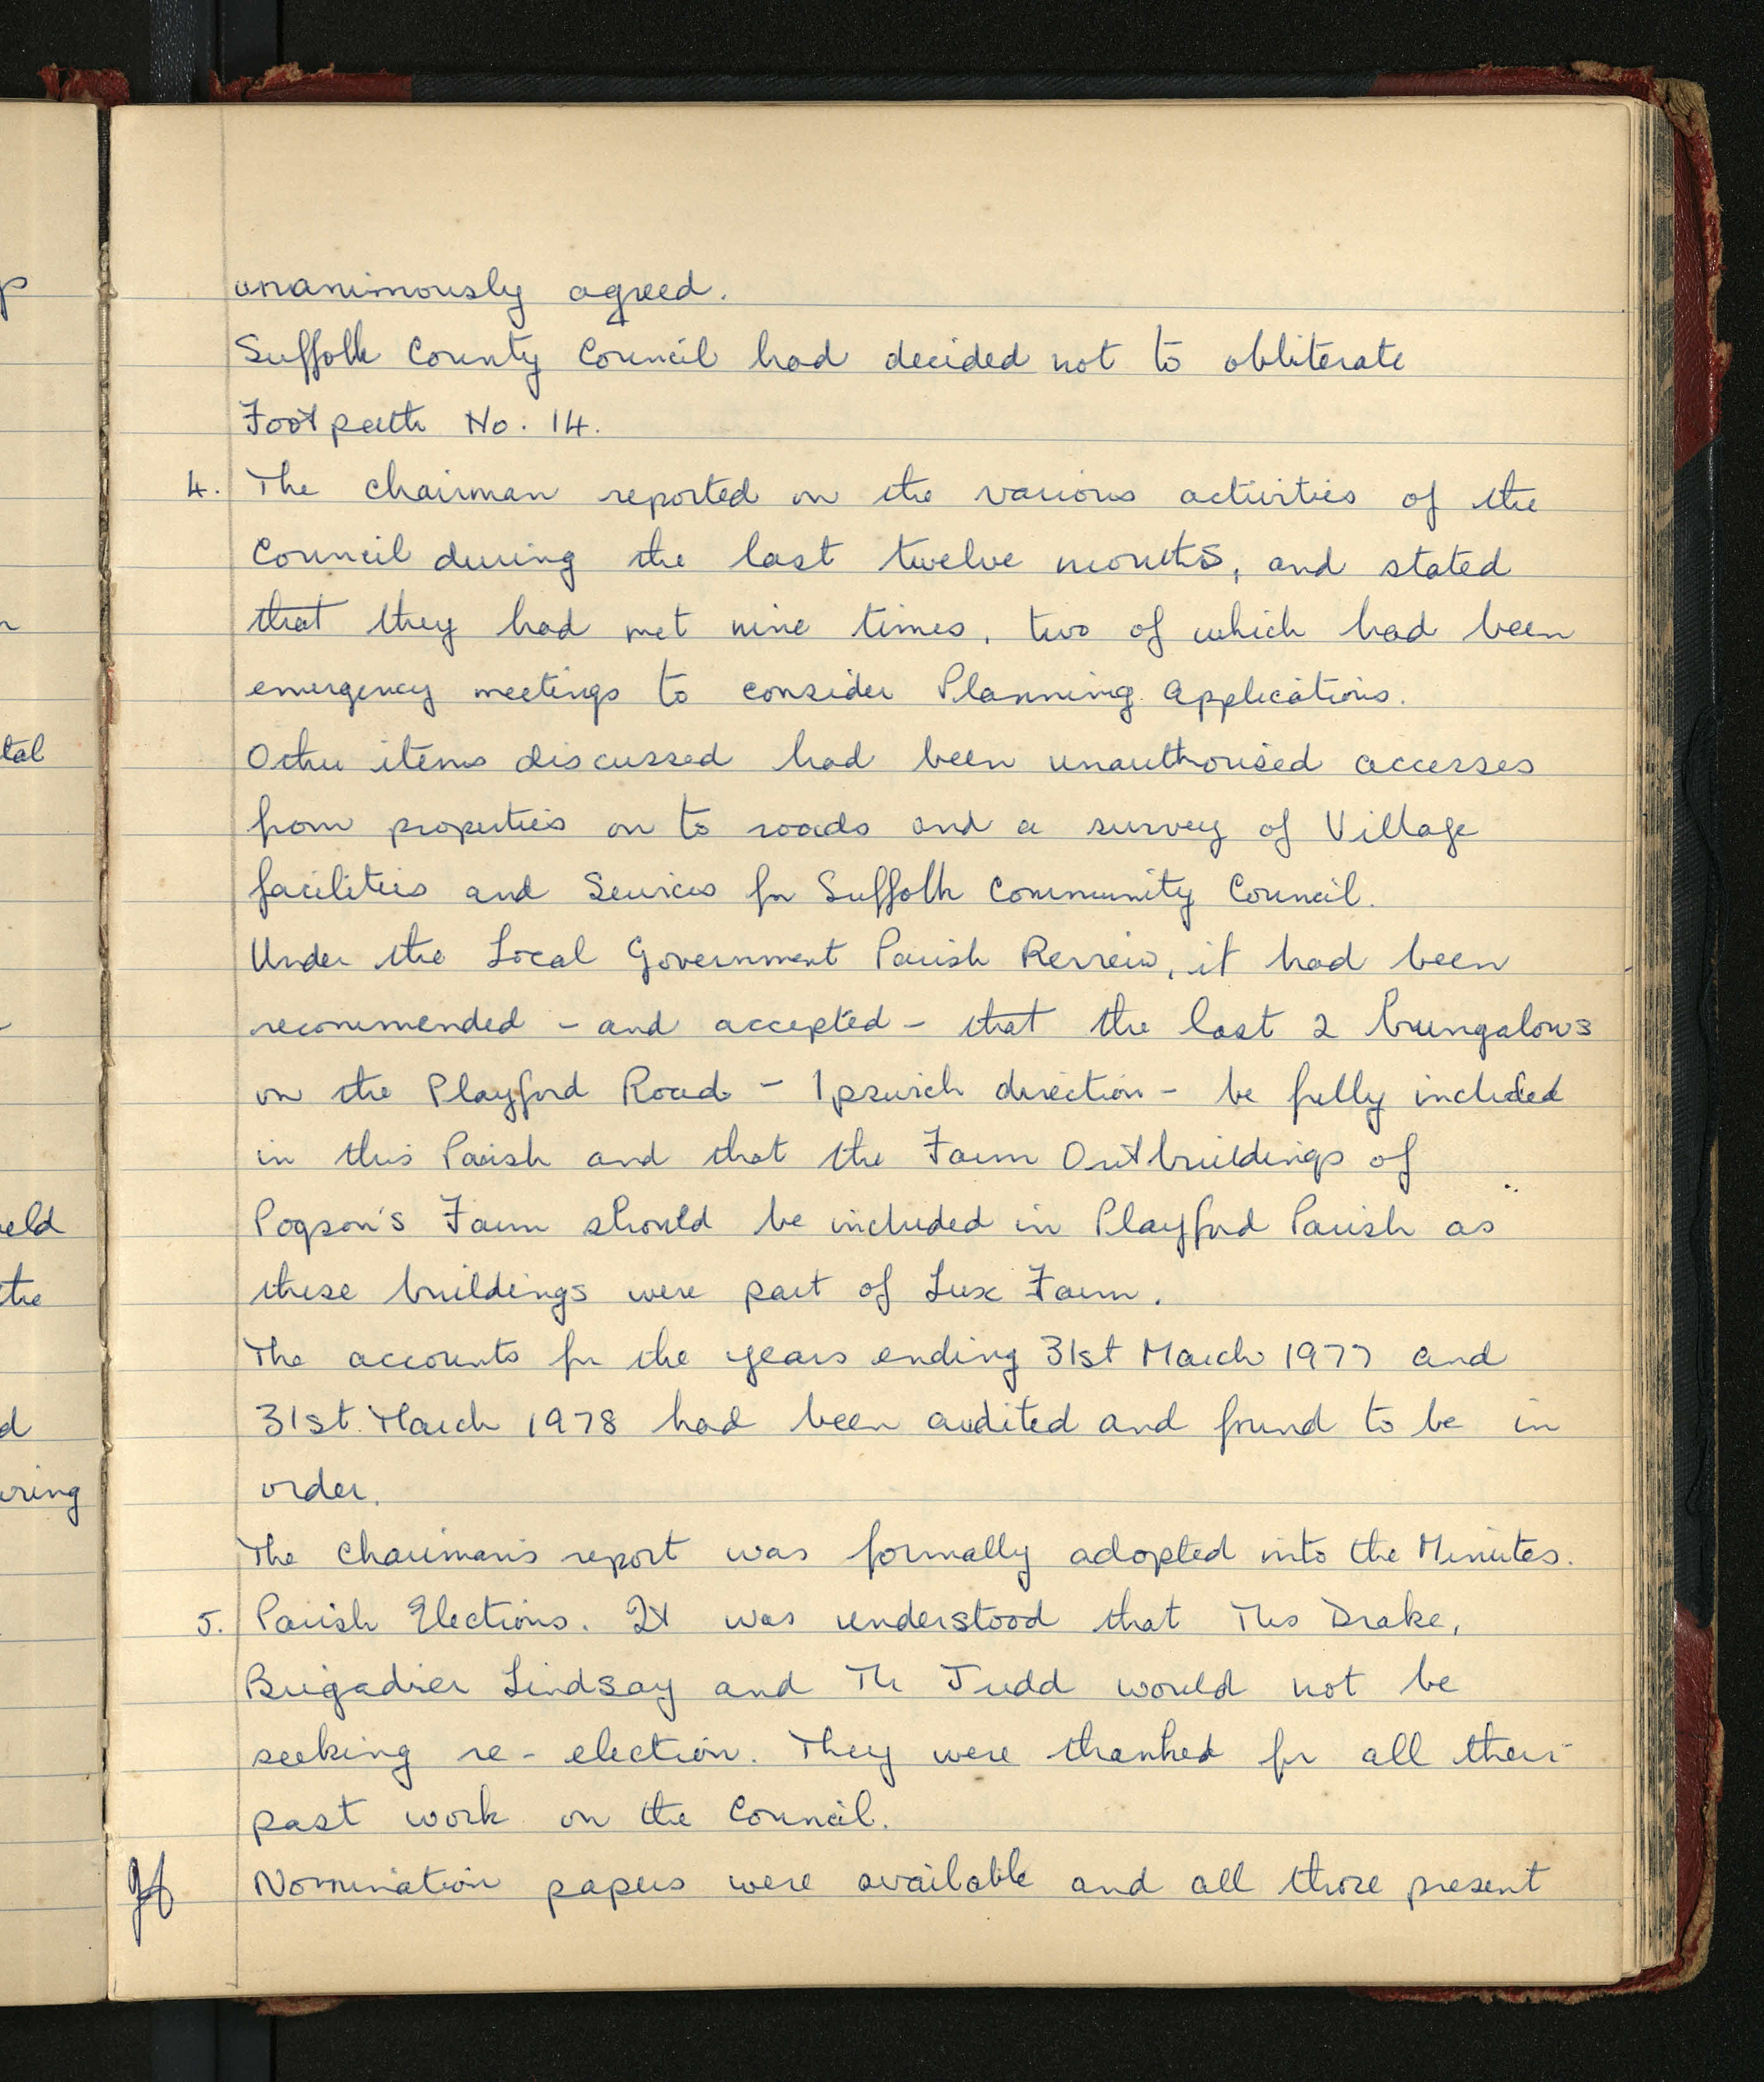 unanimously agreed.
Suffolk County Council had decided not to obliterate
Footpath No. 14.
4. The Chairman reported on the various activities of the
Council during the last twelve months, and stated
that they had met nine times, two of which had been
emergency meetings to consider Planning Applications.
Other items discussed had been unauthorised accesses
from properties on to roads and a survey of Village
facilities and Services for Suffolk Community Council.
Under the Local Government Parish Review, it had been
recommended - and accepted - that the last 2 bungalows
on the Playford Road - Ipswich direction - be fully included
in this Parish and that the Farm Outbuildings of
Pogson's Farm should be included in Playford Parish as
these buildings were part of Lux Farm.
The accounts for the years ending 31st March 1977 and
31st March 1978 had been audited and found to be in
order.
The Chairman's report was formally adopted into the Minutes.
5. Parish Elections. It was understood that Mrs Drake,
Brigadier Lindsay and Mr Judd would not be
seeking re-election. They were thanked for all their
past work on the Council.
Nomination papers were available and all those present
tal
eld
the
d
uring